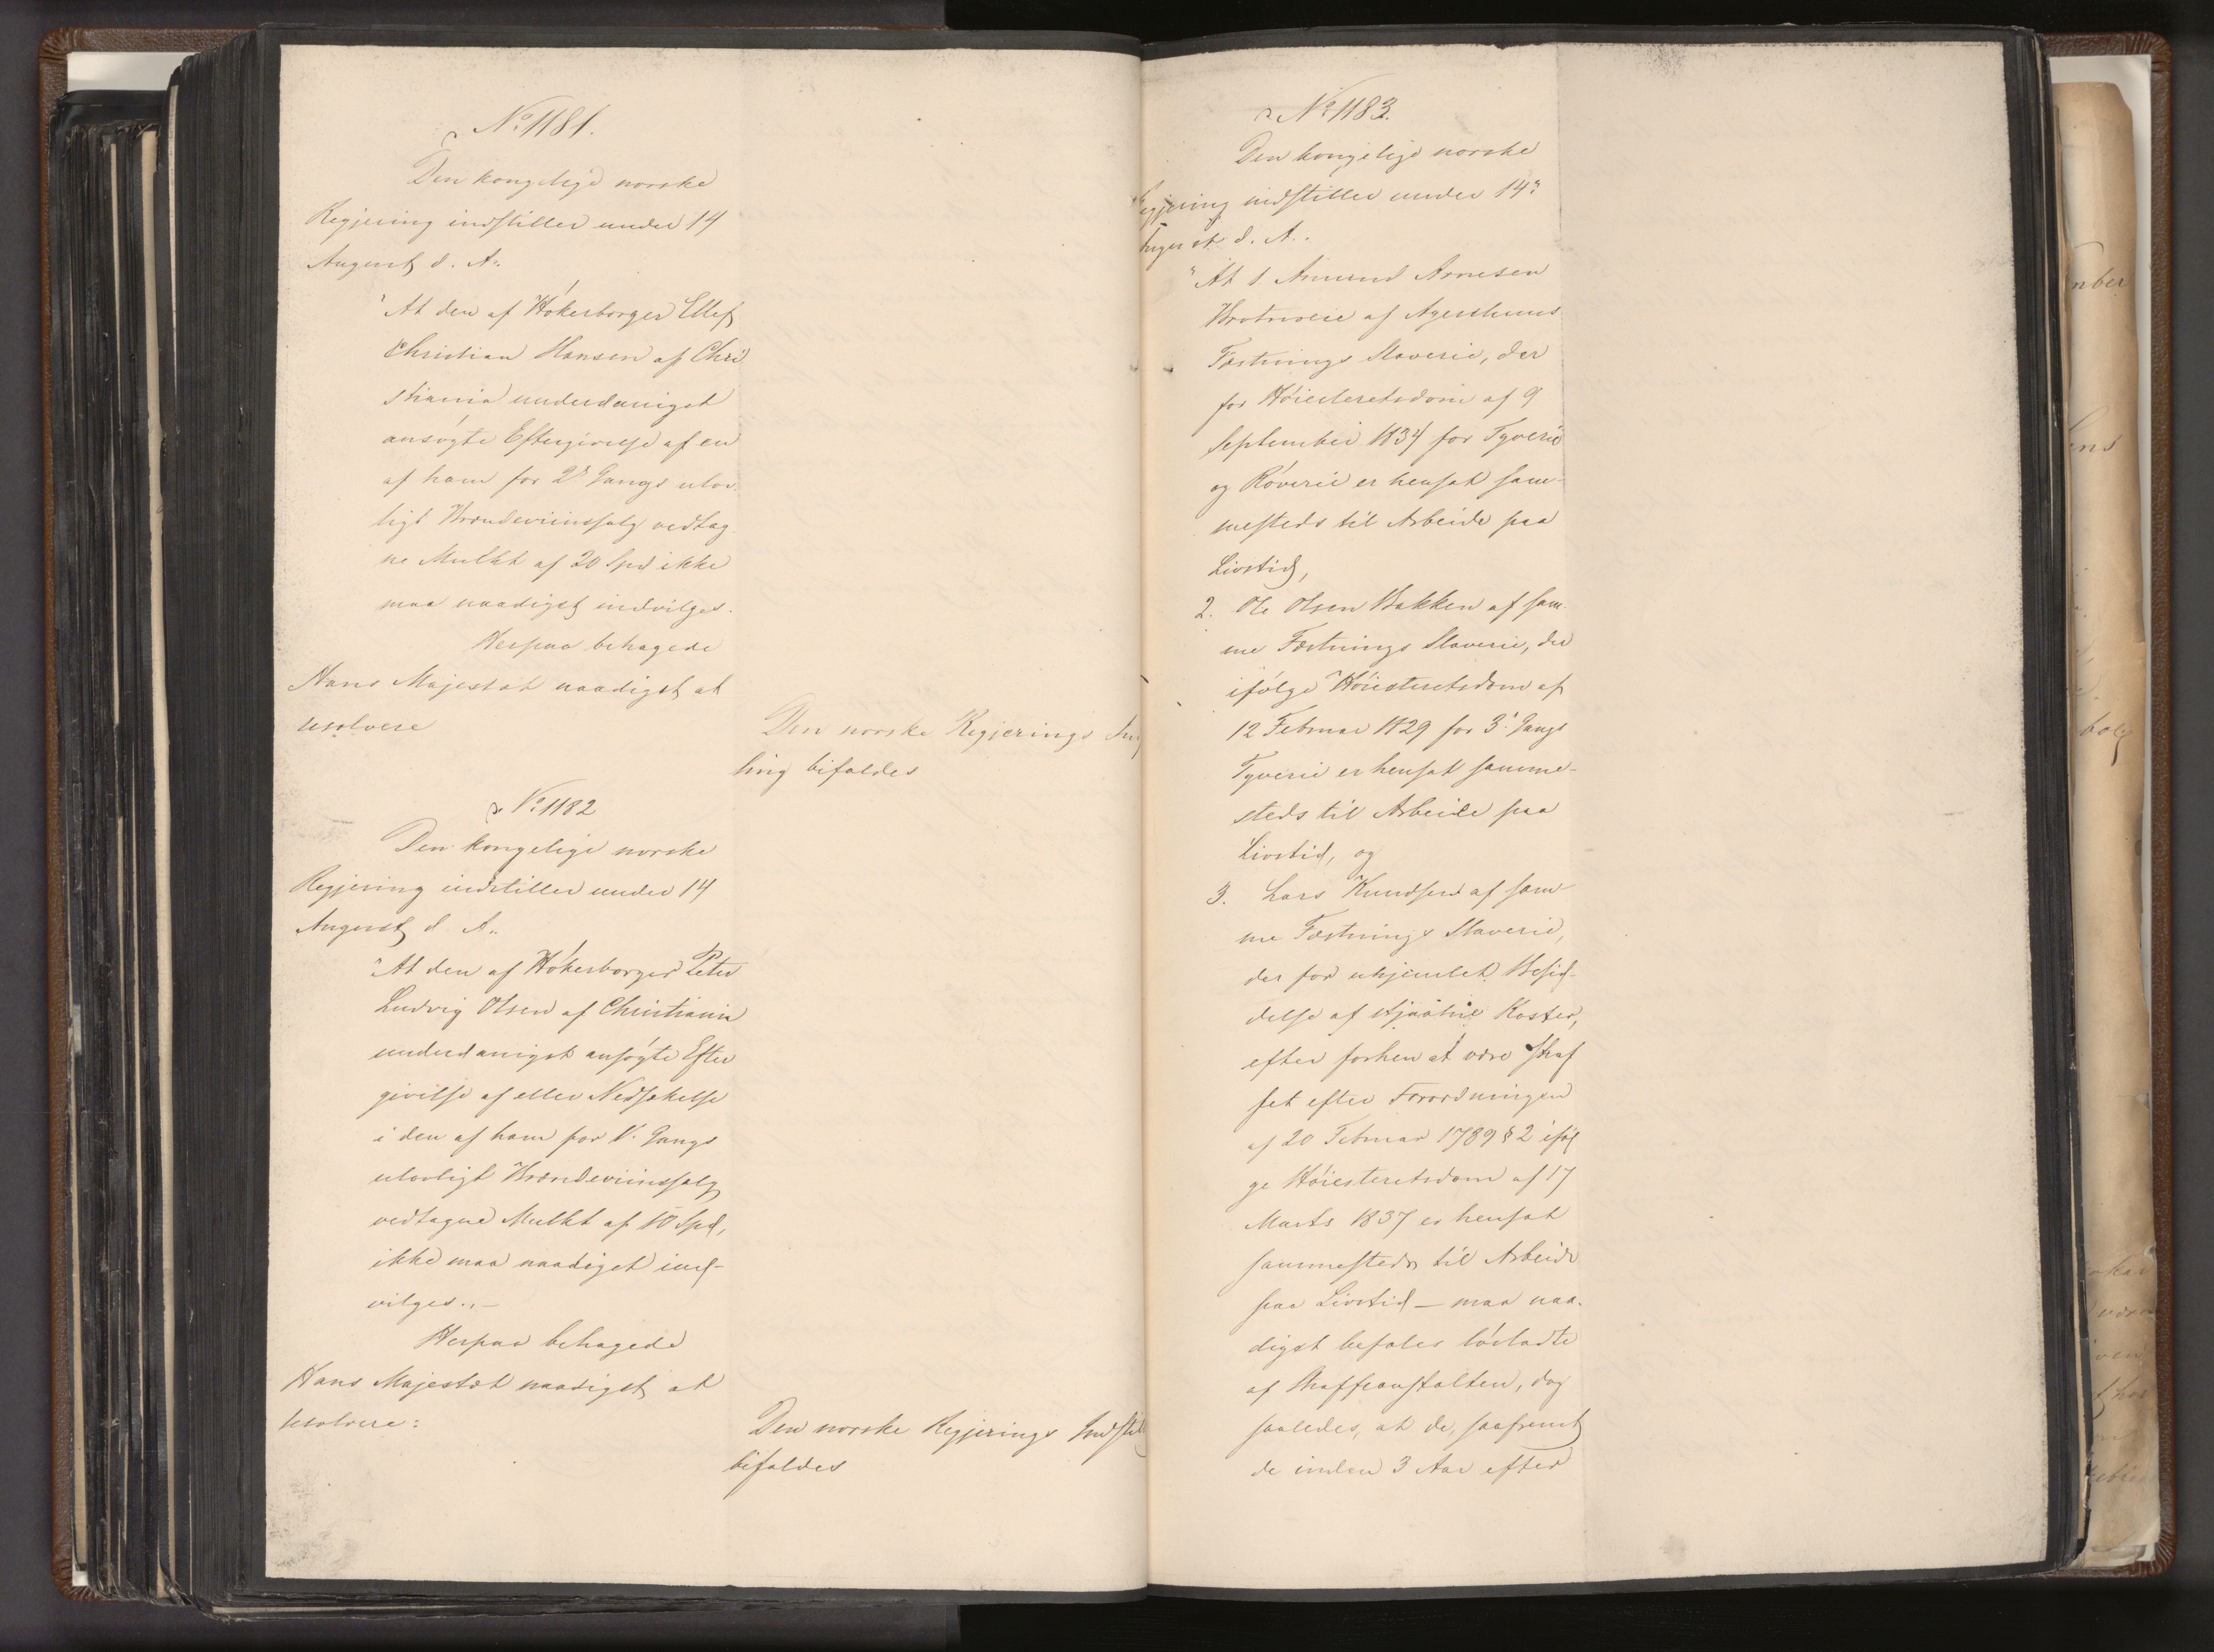 No 1181.
Den kongelige norske
Regjering indstiller under 14
August d. A.
"At den af Høkerborger Ellef
Christian Hansen af Chri
stiania underdanigst
ansøgte Eftergivelse af en
af ham for 2d Gangs ulov
ligt Brændeviinssalg vedtag
ne Mulkt af 20 Spd ikke
maa naadigst indvilges.
Herpaa behagede
Hans Majestæt naadigst at
resolvere
Den norske Regjerings
ling bifaldes
No 1182
Den kongelige norske
Regjering indstiller under 14
August d. A.
"At den af Høkerborger Peter
Ludvig Olsen af Christiania
underdanigst ansøgte Efter
givelse af eller Nedsættelse
i den af ham for 1. Gangs
ulovligt Brændeviinssalg
vedtagne Mulkt af 10 Spd,
ikke maa naadigst ind-
vilges." —
Herpaa behagede
Hans Majestæt naadigst at
resolvere:
Den norske Regjerings Indstil
bifaldes
No 1183.
Den kongelige norske
egjering indstiller under 14
August d. A.
"At 1 Amund Arnesen
af Agershuus
Fæstnings Slaverie, der
for Høiesteretsdom af 9
September 1834 for Tyverie
og Røverie er hensat sam-
mesteds til Arbeide paa
Livstid,
2. Ole Olsen Bakken af sam
me Fæstnings Slaverie, der
ifølge Høiesteretsdom af
12 Februar 1829 for 3. Gangs
Tyverie er hensat samme-
steds til Arbeide paa
Livstid, og
3. Lars Knudsen af sam
me Fæstnings Slaverie,
der for uhjemlet Besid-
delse af stjaalne Koster,
efter forhen at være straf
fet efter Forordningen
af 20 Februar 1789 § 2 iføl
ge Høiesteretsdom af 17
Marts 1837 er hensat
sammesteds til Arbeide
paa Livstid — maa naa-
digst befales løsladte
af Straffeanstalten, dog
saaledes, at de, saafremt
de inden 3 Aar efter